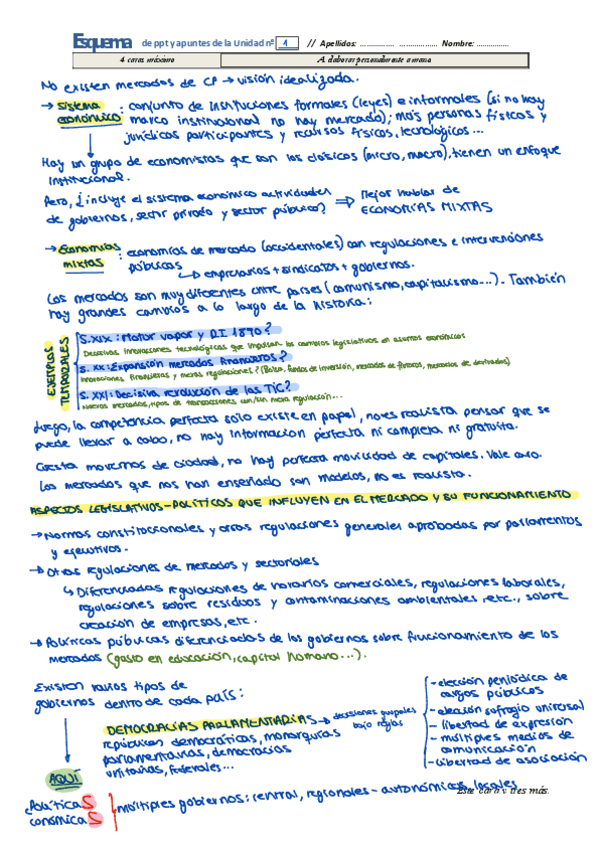 Esquema de ppt y apuntes de la Unidad nº 1 // Apellidos: ................ ................. Nombre: ...............
4 caras máximo A elaborar personalmente a mano
No existen mercados de CP → visión idealizada.
→ Sistema económico: conjunto de instituciones formales (leyes) e informales (si no hay
marco institucional no hay mercado); más personas físicas y
jurídicas participantes y recursos físicos, tecnológicos...
Hay un grupo de economistas que son los clásicos (micro, macro), tienen un enfoque
institucional.
Pero, ¿incluye el sistema económico actividades
de gobiernos, sector privado y sector público? ⇒ Mejor hablar de
ECONOMÍAS MIXTAS
→ Economías mixtas: economías de mercado (occidentales) con regulaciones e intervenciones
públicas ↳ empresarios + sindicatos + gobiernos.
Los mercados son muy diferentes entre países (comunismo, capitalismo...). También
hay grandes cambios a lo largo de la historia:
EJEMPLOS TEMPORALES
S. XIX: Motor vapor y RI 1870?
Decisivas innovaciones tecnológicas que impulsan los cambios legislativos en asuntos económicos
S. XX: Expansión mercados financieros?
Innovaciones financieras y meras regulaciones? (Bolsa, fondos de inversión, mercados de futuros, mercados de derivados)
S. XXI: Decisiva revolución de las TIC?
Nuevos mercados, tipos de transacciones con/sin mera regulación...
Luego, la competencia perfecta solo existe en papel, no es realista pensar que se
puede llevar a cabo, no hay información perfecta ni completa ni gratuita.
Cuesta movernos de ciudad, no hay perfecta movilidad de capitales. Vale caro.
Los mercados que nos han enseñado son modelos, no es realista.
ASPECTOS LEGISLATIVOS-POLÍTICOS QUE INFLUYEN EN EL MERCADO Y SU FUNCIONAMIENTO
→ Normas constitucionales y otras regulaciones generales aprobadas por parlamentos
y ejecutivos.
→ Otras regulaciones de mercados y sectoriales
↳ Diferenciadas regulaciones de horarios comerciales, regulaciones laborales,
regulaciones sobre residuos y contaminaciones ambientales, etc., sobre
creación de empresas, etc.
→ Políticas públicas diferenciadas de los gobiernos sobre funcionamiento de los
mercados (gasto en educación, capital humano...).
Existen varios tipos de
gobiernos dentro de cada país:
DEMOCRACIAS PARLAMENTARIAS → decisiones grupales
bajo reglas
repúblicas democráticas, monarquías
parlamentarias, democracias
unitarias, federales...
- elección periódica de
cargos públicos
- elección sufragio universal
- libertad de expresión
- múltiples medios de
comunicación
- libertad de asociación
AQUÍ
PolíticaS
conómicaS
múltiples gobiernos: central, regionales - autonómicas, locales
Esta cara y tres más.